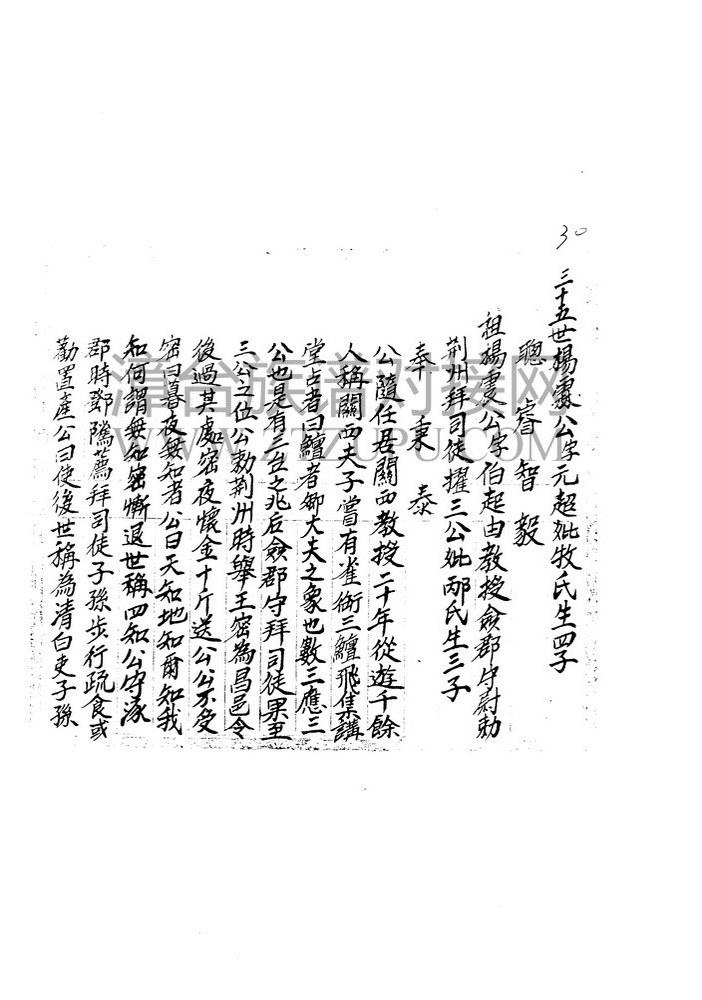 30
三十五世楊震公字元超妣牧氏生四子
聰 睿 智 毅
祖楊震公字伯起由教授僉郡守尉勅
荊州拜司徒擢三公妣邴氏生三子
奉 秉 泰
公隨任居關西教授二十年從遊千餘
人稱關西夫子嘗有雀銜三鱣飛集講
堂占者曰鱣者卿大夫之象也數三應三
公也是有三立之兆后僉郡守拜司徒果至
三公之位公勅荊州時舉王密為昌邑令
後過其處密夜懷金十斤送公公不受
密曰暮夜無知者公曰天知地知爾知我
知何謂無知密慚退世稱四知公守涿
郡時鄧隲薦拜司徒子孫步行疏食或
勸置產公曰使後世稱為清白吏子孫
清台族谱对接网
WWW.ZZUPU.COM